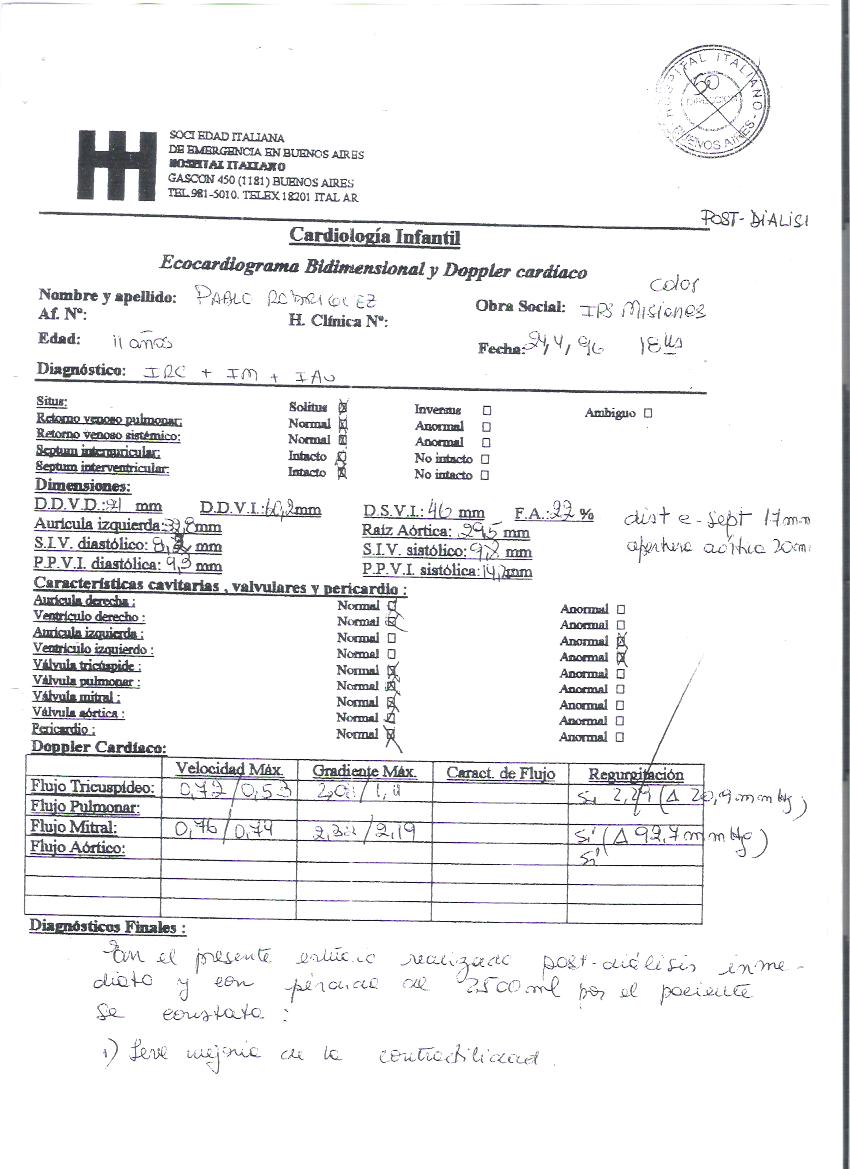 HOSPITAL ITALIANO
50
DIRECCION
BUENOS AIRES
SOCIEDAD ITALIANA
DE EMERGENCIA EN BUENOS AIRES
HOSPITAL ITALIANO
GASCON 450 (1181) BUENOS AIRES
TEL.981-5010. TELEX 18201 ITAL AR
POST-DIALISI
Cardiología Infantil
Ecocardiograma Bidimensional y Doppler cardíaco
color
Nombre y apellido: PABLO RODRIGUEZ Obra Social: IPS Misiones
Af. Nº: H. Clínica Nº:
Edad: 11 años Fecha: 24, 4, 96 18 hs
Diagnóstico: IRC + IM + IAo
Situs: Solitus Inversus Ambiguo
Retorno venoso pulmonar: Normal Anormal
Retorno venoso sistémico: Normal Anormal
Septum interauricular: Intacto No intacto
Septum interventricular: Intacto No intacto
Dimensiones:
D.D.V.D.: 21 mm D.D.V.I.: 60,2 mm D.S.V.I.: 46 mm F.A.: 22 % dist e-sept 17 mm
Aurícula izquierda: 37,8 mm Raíz Aórtica: 29,5 mm apertura aórtica 20 mm
S.I.V. diastólico: mm S.I.V. sistólico: 9,2 mm
P.P.V.I. diastólica: 9,3 mm P.P.V.I. sistólica: 14,2 mm
Características cavitarias , valvulares y pericardio :
Aurícula derecha : Normal Anormal
Ventrículo derecho : Normal Anormal
Aurícula izquierda : Normal Anormal
Ventrículo izquierdo : Normal Anormal
Válvula tricúspide : Normal Anormal
Válvula pulmonar : Normal Anormal
Válvula mitral : Normal Anormal
Válvula aórtica : Normal Anormal
Pericardio : Normal Anormal
Doppler Cardíaco:
Velocidad Máx. Gradiente Máx. Caract. de Flujo Regurgitación
Flujo Tricuspídeo: 0,72/0,53 Si 2,29 (Δ 20,9 mmHg)
Flujo Pulmonar:
Flujo Mitral: 0,76/0,74 2,32/2,19 Si (Δ 92,7 mmHg)
Flujo Aórtico: Si
Diagnósticos Finales :
En el presente estudio realizado post-diálisis inme-
diato y con pérdida de 3500 ml por el paciente
se constata :
1) Leve mejoria de la contractilidad.